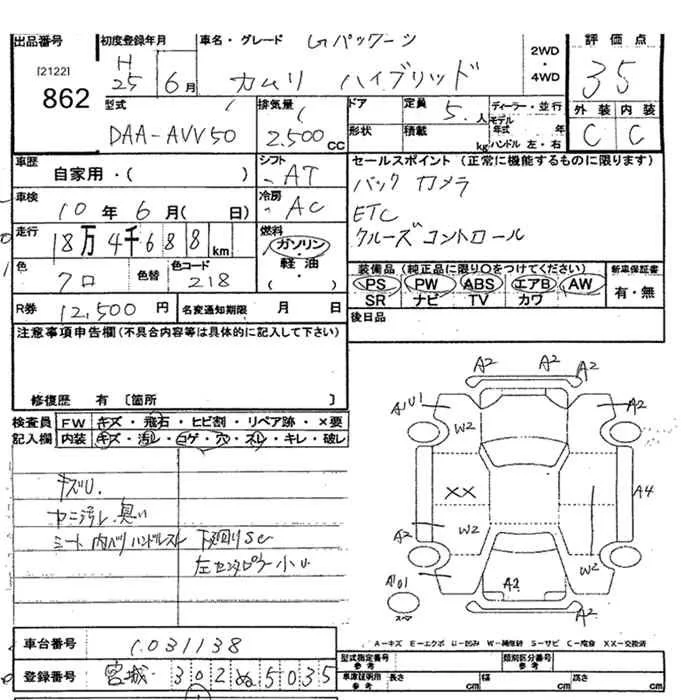 出品番号
[2122]
862
初度登録年月
H 25 6月
車名・グレード
Gパッケージ
カムリ ハイブリッド
2WD
・
4WD
評価点
3.5
外装 内装
C C
型式
DAA-AVV50
排気量
2.500 CC
ドア
形状
定員
5.人
積載
kg
ディーラー・並行
モデル年式 年
ハンドル 左・右
車歴
自家用・( )
シフト
AT
セールスポイント (正常に機能するものに限ります)
バックカメラ
ETC
クルーズコントロール
車検
10年6月( 日)
冷房
AC
走行
18万4千688km
燃料
ガソリン・
軽油・
( )
色
クロ
色替
色コード
218
装備品 (純正品に限り○をつけてください)
PS PW ABS エアB AW
SR ナビ TV カワ
新車保証書
有・無
R券
12,500円
名変通知期限 月 日
後日品
注意事項申告欄 (不具合内容等は具体的に記入して下さい)
修復歴 有 〔箇所 〕
検査員
記入欄
FW キズ・飛石・ヒビ割・リペア跡・×要
内装 キズ・汚レ・コゲ・穴・スレ・キレ・破レ
キズU.
ヤニ汚レ.臭い
シート 内バリ ハンドルスレ
下廻りSC
左センタピラー小U
A2 A2 A2
A1 U1 W2 A2
XX A4
A2 W2 W2
A1 U1 A2 A2
スペア
A-キズ E-エクボ U-凹み W-補修跡 S-サビ C-腐食 XX-交換済
車台番号
1031138
登録番号
宮城 302 ぬ 5035
型式指定番号
参考
類別区分番号
参考
車庫証明用
参考
長さ cm 幅 cm 高さ cm